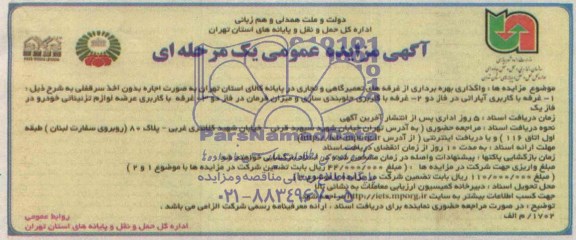 دولت و ملت همدلی و هم زبانی
اداره کل حمل و نقل و پایانه های استان تهران
آگهی مزایده عمومی یک مرحله ای
موضوع مزایده ها : واگذاری بهره برداری از غرفه های تعمیرگاهی و تجاری در پایانه کالای استان تهران به صورت اجاره بدون اخذ سرقفلی به شرح ذیل :
۱- غرفه با کاربری آپاراتی در فاز دو ۲- غرفه با کاربری جلوبندی سازی و میزان فرمان در فاز دو ۳- غرفه با کاربری عرضه لوازم تزئیناتی خودرو در
فاز یک
زمان دریافت اسناد : ۵ روز اداری پس از انتشار آخرین آگهی
نحوه دریافت اسناد : مراجعه حضوری ( به آدرس تهران خیابان شهید سپهبد قرنی - خیابان شهید کلانتری غربی - پلاک ۸۰ (روبروی سفارت لبنان ) طبقه
اول اتاق ۱۱۶ ) و یا دریافت اینترنتی ( از آدرس
مهلت ارائه اسناد : به مدت ۱۰ روز از زمان انقضای دریافت اسناد
زمان بازگشایی پاکتها : پیشنهادات واصله در زمان
مبلغ واریزی جهت شرکت در مزایده ها : ( مبلغ ۰۰۰/۰۰۰ ریال بابت تضمین شرکت در مزایده ها با موضوع ۱ و ۲ )
( مبلغ ۱۱۰/۰۰۰/۰۰۰ ریال بابت تضمین شرکت در
محل تحویل اسناد : دبیرخانه کمیسیون ارزیابی معاملات به نشانی
جهت کسب اطلاعات بیشتر به سایت http://iets.mporg.ir
توضیح : در صورت مراجعه حضوری نماینده برای دریافت اسناد ، ارائه معرفینامه رسمی شرکت الزامی می باشد .
۱۷۰۲/ م الف
روابط عمومی
اداره کل حمل و نقل و پایانه های استان تهران
ParsNamadData
پایگاه اطلاع رسانی مناقصه و مزایده
۰۲۱-۸۸۳۴۹۶۷۰-۵